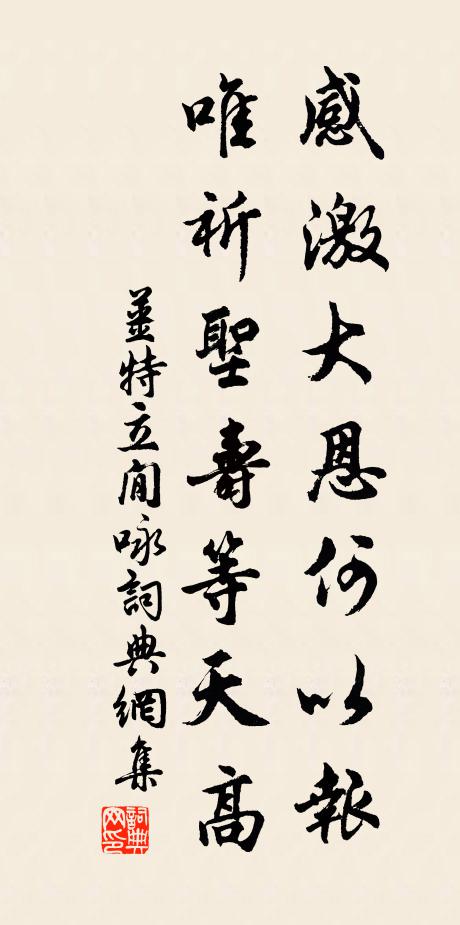 感激大恩何以報
唯祈聖壽等天高
姜特立閒咏詞典網集
詞典
网印